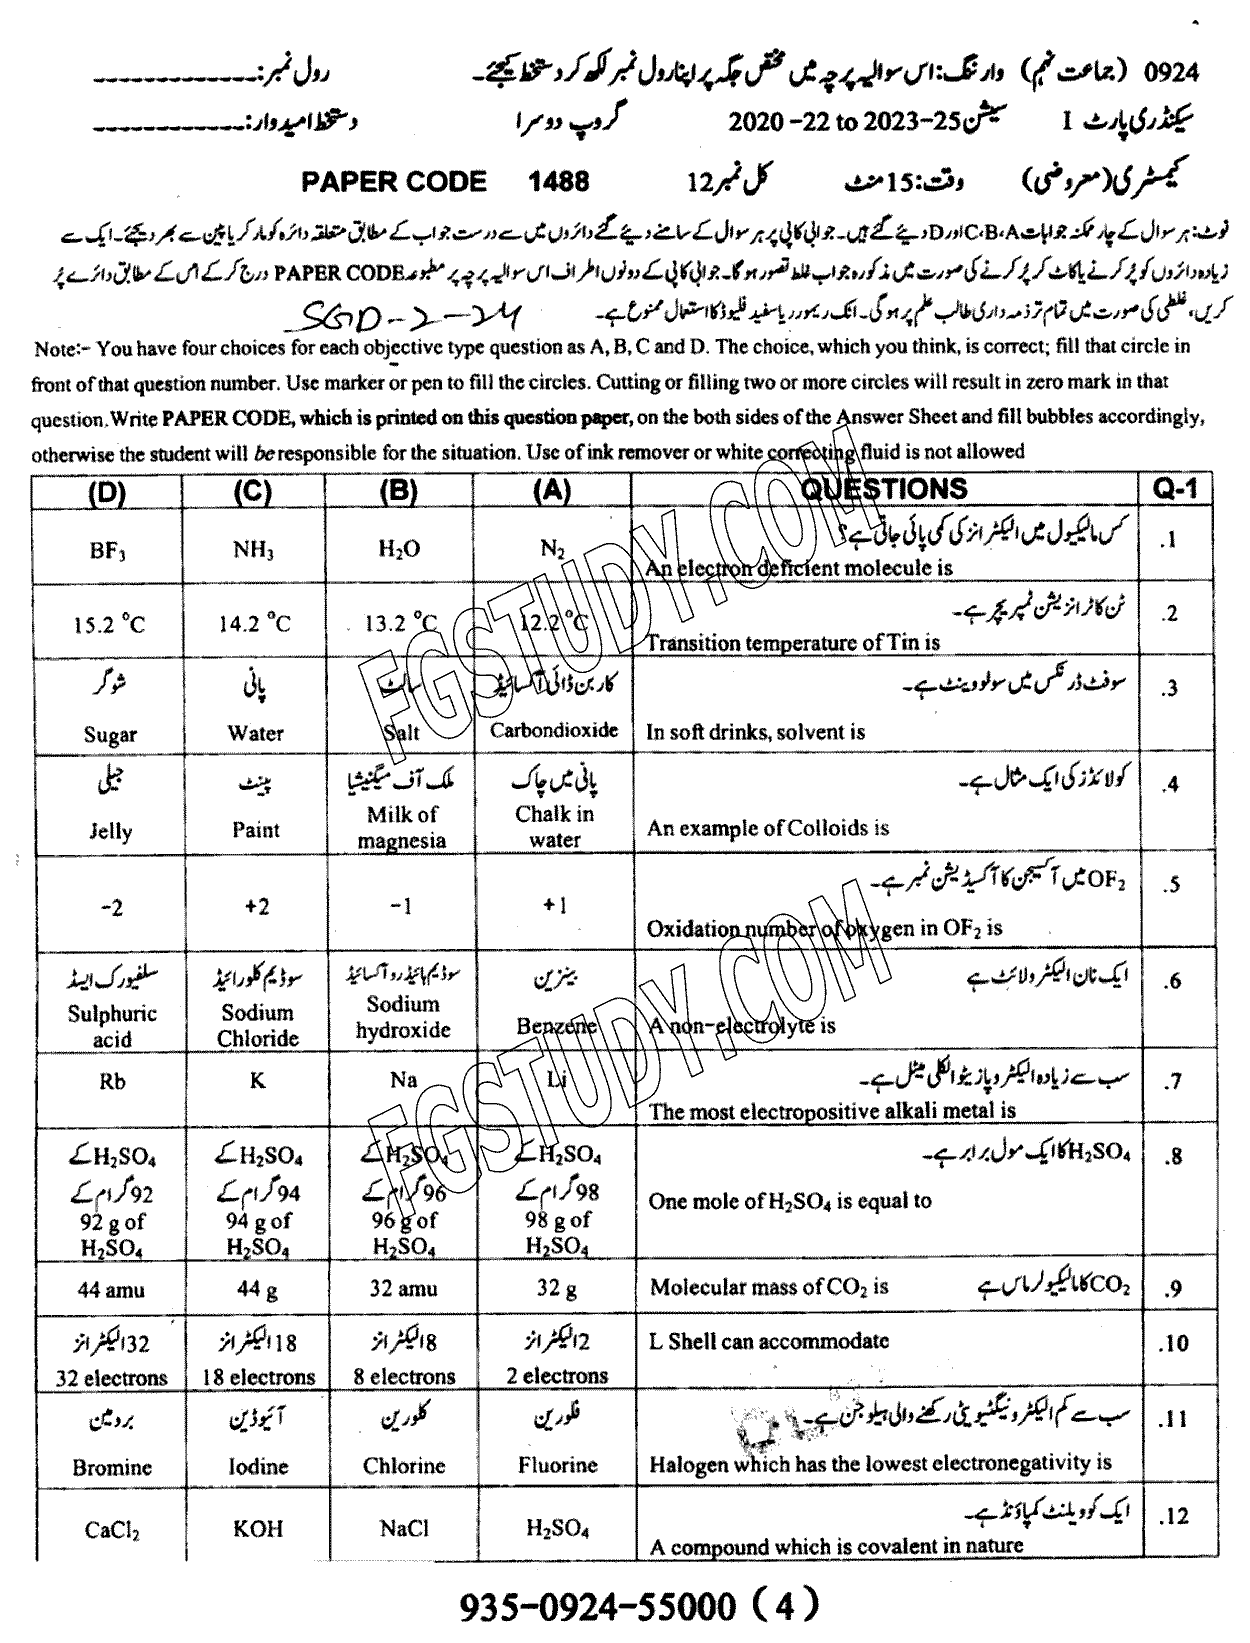 0924 (جماعت نہم) وارننگ: اس سوالیہ پرچہ میں مختص جگہ پر اپنا رول نمبر لکھ کر دستخط کیجئے۔ رول نمبر: -------------
سیکنڈری پارٹ I سیشن 2020 -22 to 2023-25 گروپ دوسرا دستخط امیدوار: ------------
کیمسٹری (معروضی) وقت: 15 منٹ کل نمبر 12 PAPER CODE 1488
نوٹ: ہر سوال کے چار ممکنہ جوابات C، B، A اور D دیئے گئے ہیں۔ جوابی کاپی پر ہر سوال کے سامنے دیئے گئے دائروں میں سے درست جواب کے مطابق متعلقہ دائرہ کو مارکر یا پین سے بھر دیجئے۔ ایک سے
زیادہ دائروں کو پُر کرنے یا کاٹ کر پُر کرنے کی صورت میں مذکورہ جواب غلط تصور ہوگا۔ جوابی کاپی کے دونوں اطراف اس سوالیہ پرچہ پر مطبوعہ PAPER CODE درج کر کے اس کے مطابق دائرے پُر
کریں، غلطی کی صورت میں تمام تر ذمہ داری طالب علم پر ہوگی۔ انک ریمور ر یا سفید فلیوڈ کا استعمال ممنوع ہے۔ SGD-2-24
Note:- You have four choices for each objective type question as A, B, C and D. The choice, which you think, is correct; fill that circle in
front of that question number. Use marker or pen to fill the circles. Cutting or filling two or more circles will result in zero mark in that
question. Write PAPER CODE, which is printed on this question paper, on the both sides of the Answer Sheet and fill bubbles accordingly,
otherwise the student will be responsible for the situation. Use of ink remover or white correcting fluid is not allowed
(D) (C) (B) (A) QUESTIONS Q-1
کس مالیکیول میں الیکٹرانز کی کمی پائی جاتی ہے؟ .1
BF₃ NH₃ H₂O N₂
An electron deficient molecule is
ٹن کا ٹرانزیشن ٹمپریچر ہے۔ .2
15.2 °C 14.2 °C 13.2 °C 12.2 °C
Transition temperature of Tin is
شوگر پانی سالٹ کاربن ڈائی آکسائیڈ سوفٹ ڈرنکس میں سولوینٹ ہے۔ .3
Sugar Water Salt Carbondioxide In soft drinks, solvent is
جیلی پینٹ ملک آف میگنیشیا پانی میں چاک کولائڈز کی ایک مثال ہے۔ .4
Jelly Paint Milk of magnesia Chalk in water An example of Colloids is
OF₂ میں آکسیجن کا آکسیڈیشن نمبر ہے۔ .5
-2 +2 -1 +1
Oxidation number of oxygen in OF₂ is
سلفیورک ایسڈ سوڈیم کلورائیڈ سوڈیم ہائیڈروآکسائیڈ بینزین ایک نان الیکٹرولائٹ ہے .6
Sulphuric acid Sodium Chloride Sodium hydroxide Benzene A non-electrolyte is
Rb K Na Li سب سے زیادہ الیکٹروپازیٹو الکلی میٹل ہے۔ .7
The most electropositive alkali metal is
H₂SO₄ کے H₂SO₄ کے H₂SO₄ کے H₂SO₄ کے H₂SO₄ کا ایک مول برابر ہے۔ .8
92 گرام کے 94 گرام کے 96 گرام کے 98 گرام کے
One mole of H₂SO₄ is equal to
92 g of 94 g of 96 g of 98 g of
H₂SO₄ H₂SO₄ H₂SO₄ H₂SO₄
44 amu 44 g 32 amu 32 g Molecular mass of CO₂ is CO₂ کا مالیکیولر ماس ہے .9
32 الیکٹرانز 18 الیکٹرانز 8 الیکٹرانز 2 الیکٹرانز L Shell can accommodate .10
32 electrons 18 electrons 8 electrons 2 electrons
برومین آئیوڈین کلورین فلورین سب سے کم الیکٹرونیگٹیویٹی رکھنے والی ہیلوجن ہے۔ .11
Bromine Iodine Chlorine Fluorine Halogen which has the lowest electronegativity is
ایک کوویلنٹ کمپاؤنڈ ہے۔ .12
CaCl₂ KOH NaCl H₂SO₄
A compound which is covalent in nature
935-0924-55000 (4)
FGSTUDY.COM
FGSTUDY.COM